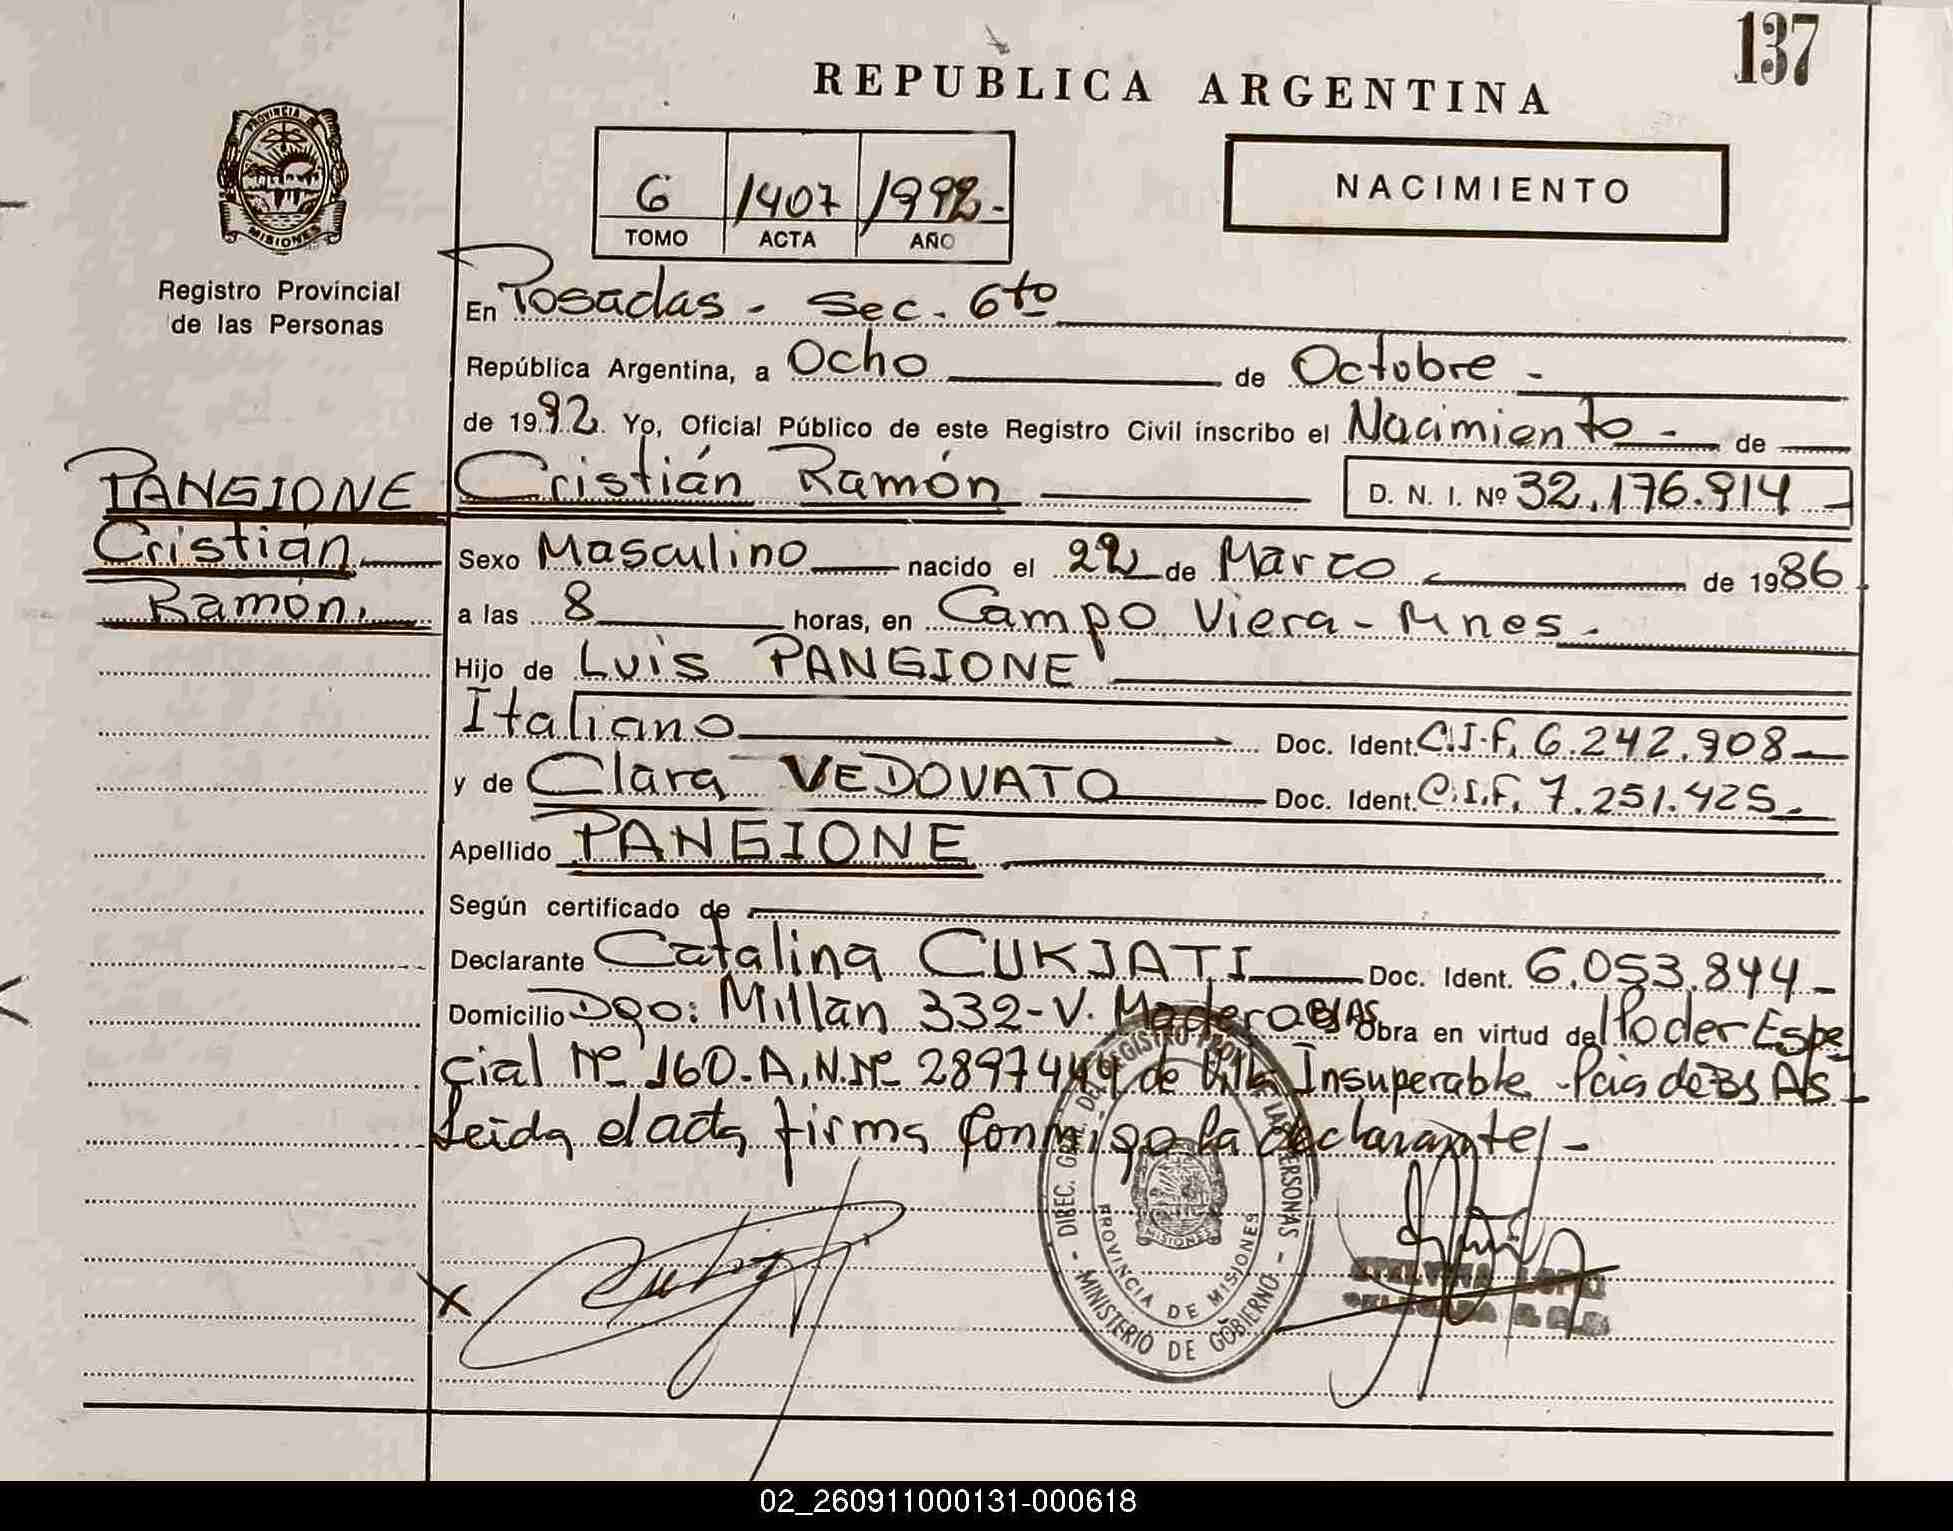 137
REPUBLICA ARGENTINA
PROVINCIA DE
MISIONES
Registro Provincial
de las Personas
6 1407 1992-
TOMO ACTA AÑO
NACIMIENTO
En Posadas - Sec. 6to
República Argentina, a Ocho de Octubre -
de 1992 Yo, Oficial Público de este Registro Civil inscribo el Nacimiento - de
PANGIONE
Cristián
Ramón.
Cristián Ramón D. N. I. Nº 32.176.914
Sexo Masculino nacido el 22 de Marzo de 1986
a las 8 horas, en Campo Viera - Mnes -
Hijo de Luis PANGIONE
Italiano Doc. Ident. C.I.F. 6.242.908
y de Clara VEDOVATO Doc. Ident. C.I.F. 7.251.425
Apellido PANGIONE
Según certificado de
Declarante Catalina CUKJATI Doc. Ident. 6.053.844
Domicilio Dgo: Millán 332-V. Madero Bs As Obra en virtud del Poder Espe
cial Nº 160. A.N.Nº 2897449 de Villa Insuperable - Pcia de Bs As
Leida el acta firma conmigo la declarante -
X
DIREC. GRAL. DEL REGISTRO PROV. DE LAS PERSONAS
PROVINCIA DE MISIONES
MISIONES
MINISTERIO DE GOBIERNO
02_260911000131-000618